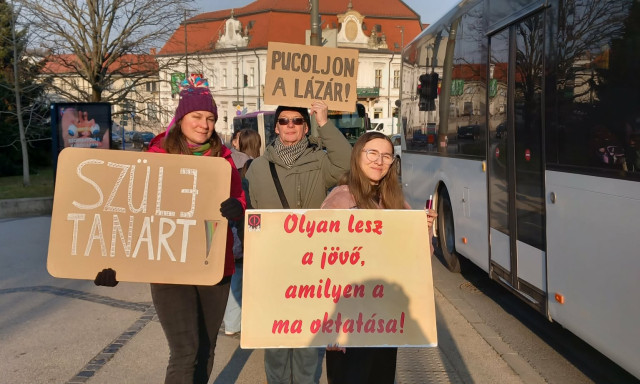 PUCOLJON
A LÁZÁR!
SZÜLJ
TANÁRT!
Olyan lesz
a jövő,
amilyen a
ma oktatása!